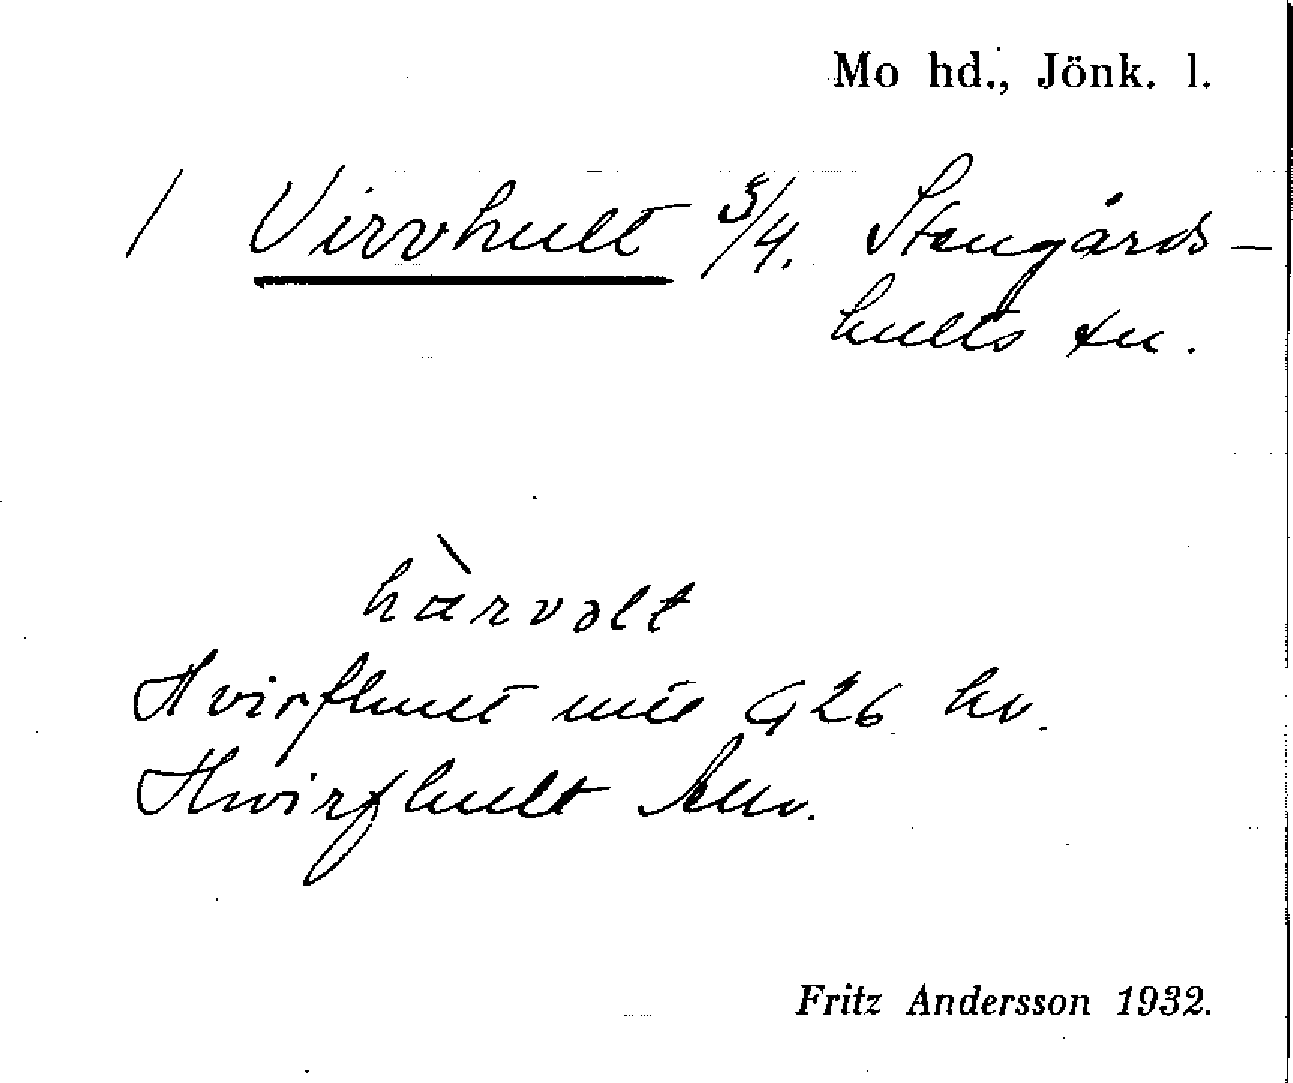 Mo hd., Jönk. l.
/ Virvhult 3/4. Stengårds-
hults sn.
hàrvəlt
Hvirfhult G26 hv.
Hwirfhult
Fritz Andersson 1932.